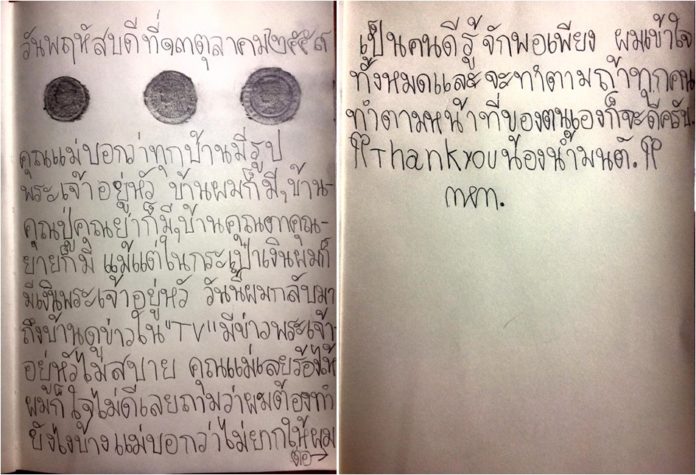 วันพฤหัสบดีที่๑๓ตุลาคม๒๕๕๙
คุณแม่บอกว่าทุกบ้านมีรูป
พระเจ้าอยู่หัว บ้านผมก็มี,บ้าน-
คุณปู่คุณย่าก็มี,บ้านคุณตาคุณ-
ยายก็มี แม้แต่ในกระเป๋าเงินผมก็
มีเงินพระเจ้าอยู่หัว วันนี้ผมกลับมา
ถึงบ้านดูข่าวใน"TV"มีข่าวพระเจ้า
อยู่หัวไม่สบาย คุณแม่เลยร้องไห้
ผมก็ใจไม่ดีเลยถามว่าผมต้องทำ
ยังไงบ้างแม่บอกว่าไม่ยากให้ผม
ต่อ→
เป็นคนดีรู้จักพอเพียง ผมเข้าใจ
ทั้งหมดและจะทำตามถ้าทุกคน
ทำตามหน้าที่ของตนเองก็จะดีครับ.
Thankyouน้องน้ำมนต์.